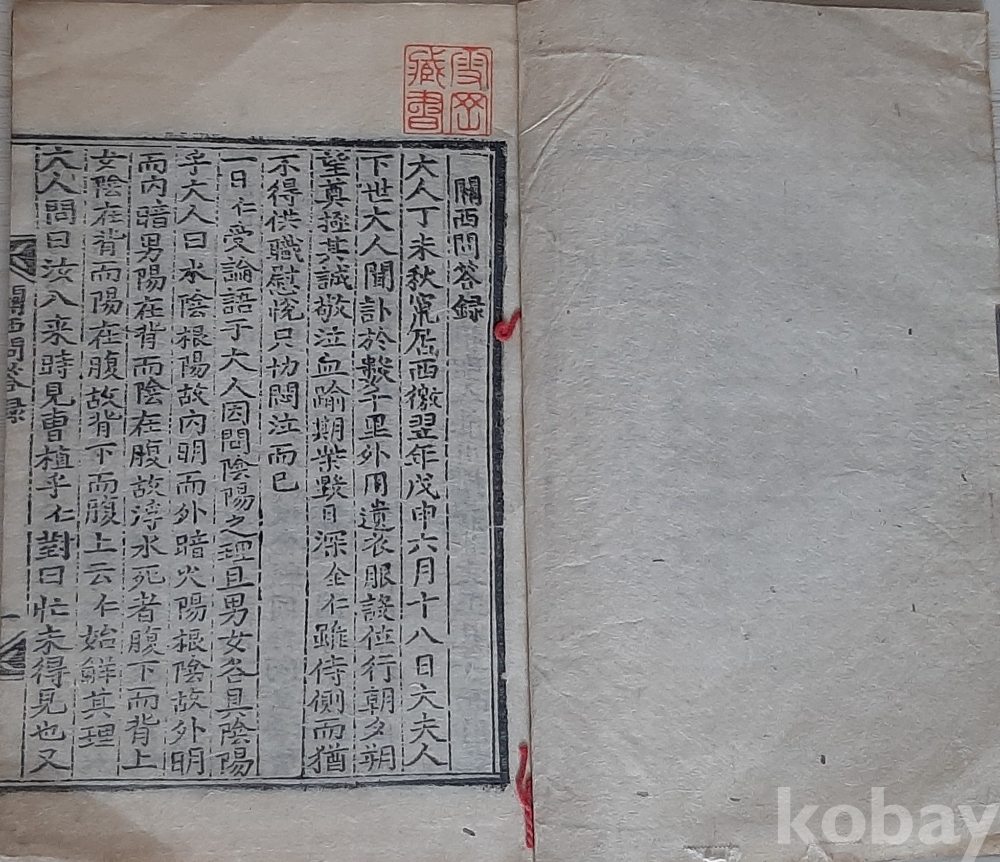 關西問答錄
大人丁未秋竄居西徼翌年戊申六月十八日大夫人
下世大人聞訃於數千里外用遺衣服設位行朝夕朔
望奠極其誠敬泣血踰期柴毀日深全仁雖侍側而猶
不得供職慰悅只切悶泣而已
一日仁受論語于大人因問陰陽之理且男女各具陰陽
乎大人曰水陰根陽故內明而外暗火陽根陰故外明
而內暗男陽在背而陰在腹故浮水死者腹下而背上
女陰在背而陽在腹故背下而腹上云仁始觧其理
大人問曰汝入来時見曹植乎仁對曰忙未得見也又
關西問答录
一
雪岡藏書
kobay